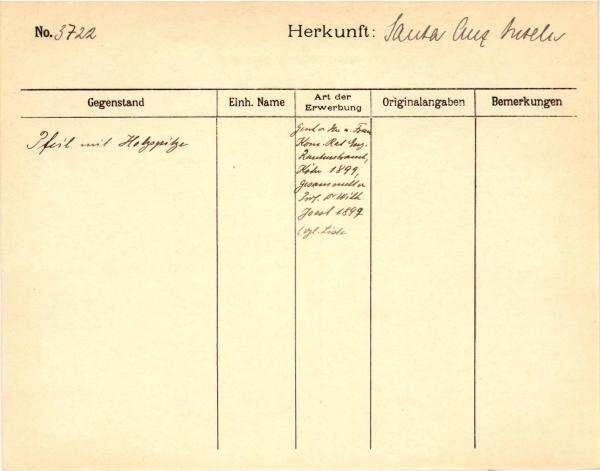 No. 3722
Herkunft: Santa Cruz Inseln
Gegenstand
Einh. Name
Art der
Erwerbung
Originalangaben
Bemerkungen
Pfeil mit Holzspitze
Gesch. v. Hn. u. Frau
Kom. Rat Eug.
Rautenstrauch,
Köln 1899,
gesammelt v.
Prof. Dr. Wilh.
Joest 1897
(vgl. Liste